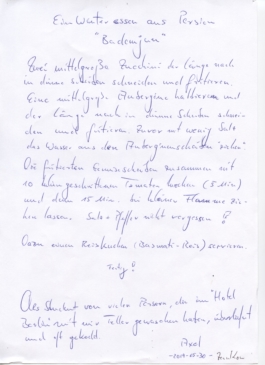 Ein Winteressen aus Persien
"Bademjun"
Zwei mittelgroße Zucchini der Länge nach
in dünne Scheiben schneiden und frittieren.
Eine mittelgroße Aubergine halbieren und
der Länge nach in dünne Scheiben schnei-
den und frittieren. Zuvor mit wenig Salz
das Wasser aus den Auberginenscheiben ziehen.
Die frittierten Gemüsescheiben zusammen mit
10 kleingeschnittenen Tomaten kochen (5 Min)
und dann 15 Min. bei kleiner Flamme zie-
hen lassen. Salz + Pfeffer nicht vergessen!
Dazu einen Reiskuchen (Basmati-Reis) servieren.
Fertig!
Als Student von vielen Persern, die im Hotel
Berlin mit mir Teller gewaschen haben,
und oft gekocht.
Axel